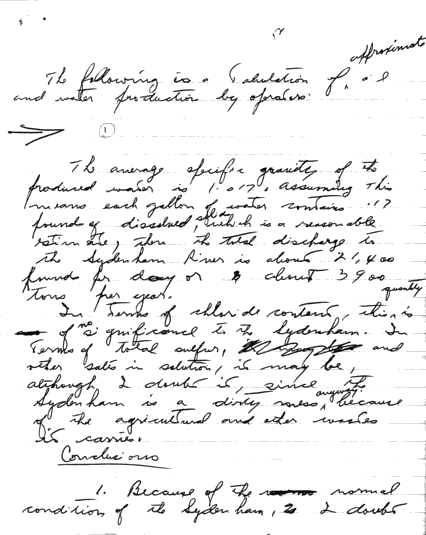 approximate
The following is a Tabulation of ^ oil
and water production by operators:
①
The average specific gravity of the
produced water is 1.017. Assuming this
means each gallon of water contains .17
pound of dissolved solids, which is a reasonable
estimate, then the total discharge to
the Sydenham River is about 21,400
pounds per day or about 3900
tons per year.
quantity
In Terms of chloride content, this is
of no significance to the Sydenham. In
Terms of total sulfur, and
other salts in solution, it may be,
although I doubt it, since the
Sydenham is a dirty mess anyway, because
of the agricultural and other wastes
it carries.
Conclusions
1. Because of the normal
condition of the Sydenham, I doubt